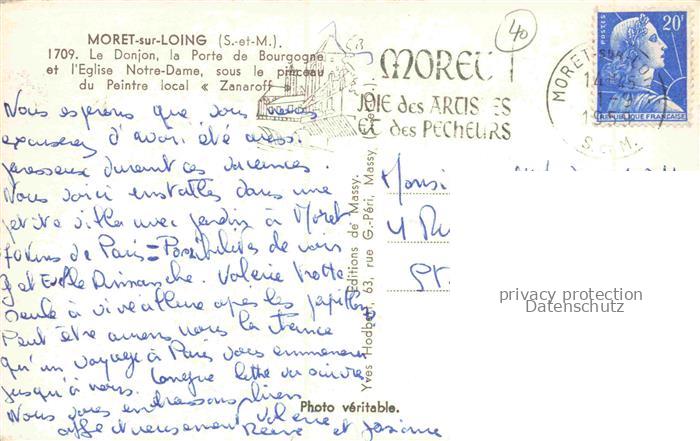 MORET-sur-LOING (S.-et-M.).
1709. Le Donjon, la Porte de Bourgogne
et l'Eglise Notre-Dame, sous le pinceau
du Peintre local « Zanaroff »
40
MORET
JOIE des ARTISTES
ET des PECHEURS
MORET-SUR-L
S.-et-M.
POSTES
20F
REPUBLIQUE FRANÇAISE
Nous esperons que vous nous
excuserez d'avoir été aussi
paresseux durant ces vacances.
Nous voici installés dans une
petite villa avec jardin à Moret
70 kms de Paris = Possibilités de voir
J et Dimanche. Valerie trotte
seule à vive allure après les papillons
Peut être aurons nous la chance
qu'un voyage à Paris vous emmenera
jusqu'à nous. Longue lettre va suivre
Nous vous embrassons bien
affectueusement Valerie
et
Monsi
4 Ru
St.
Editions de Massy.
Yves Hodbert, 63, rue G.-Péri, Massy
Photo véritable.
privacy protection
Datenschutz